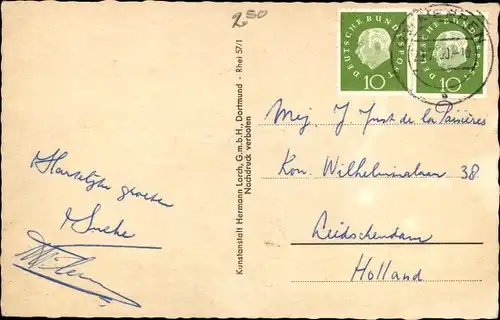 2 50
DEUTSCHE BUNDESPOST
10
DEUTSCHE BUNDESPOST
10
Kunstanstalt Hermann Lorch, G.m.b.H., Dortmund - Rhei 57/1
Nachdruck verboten
Mej J Just de la Paisières
Kon. Wilhelminalaan 38
Leidschendam
Holland
Hartelijke groeten